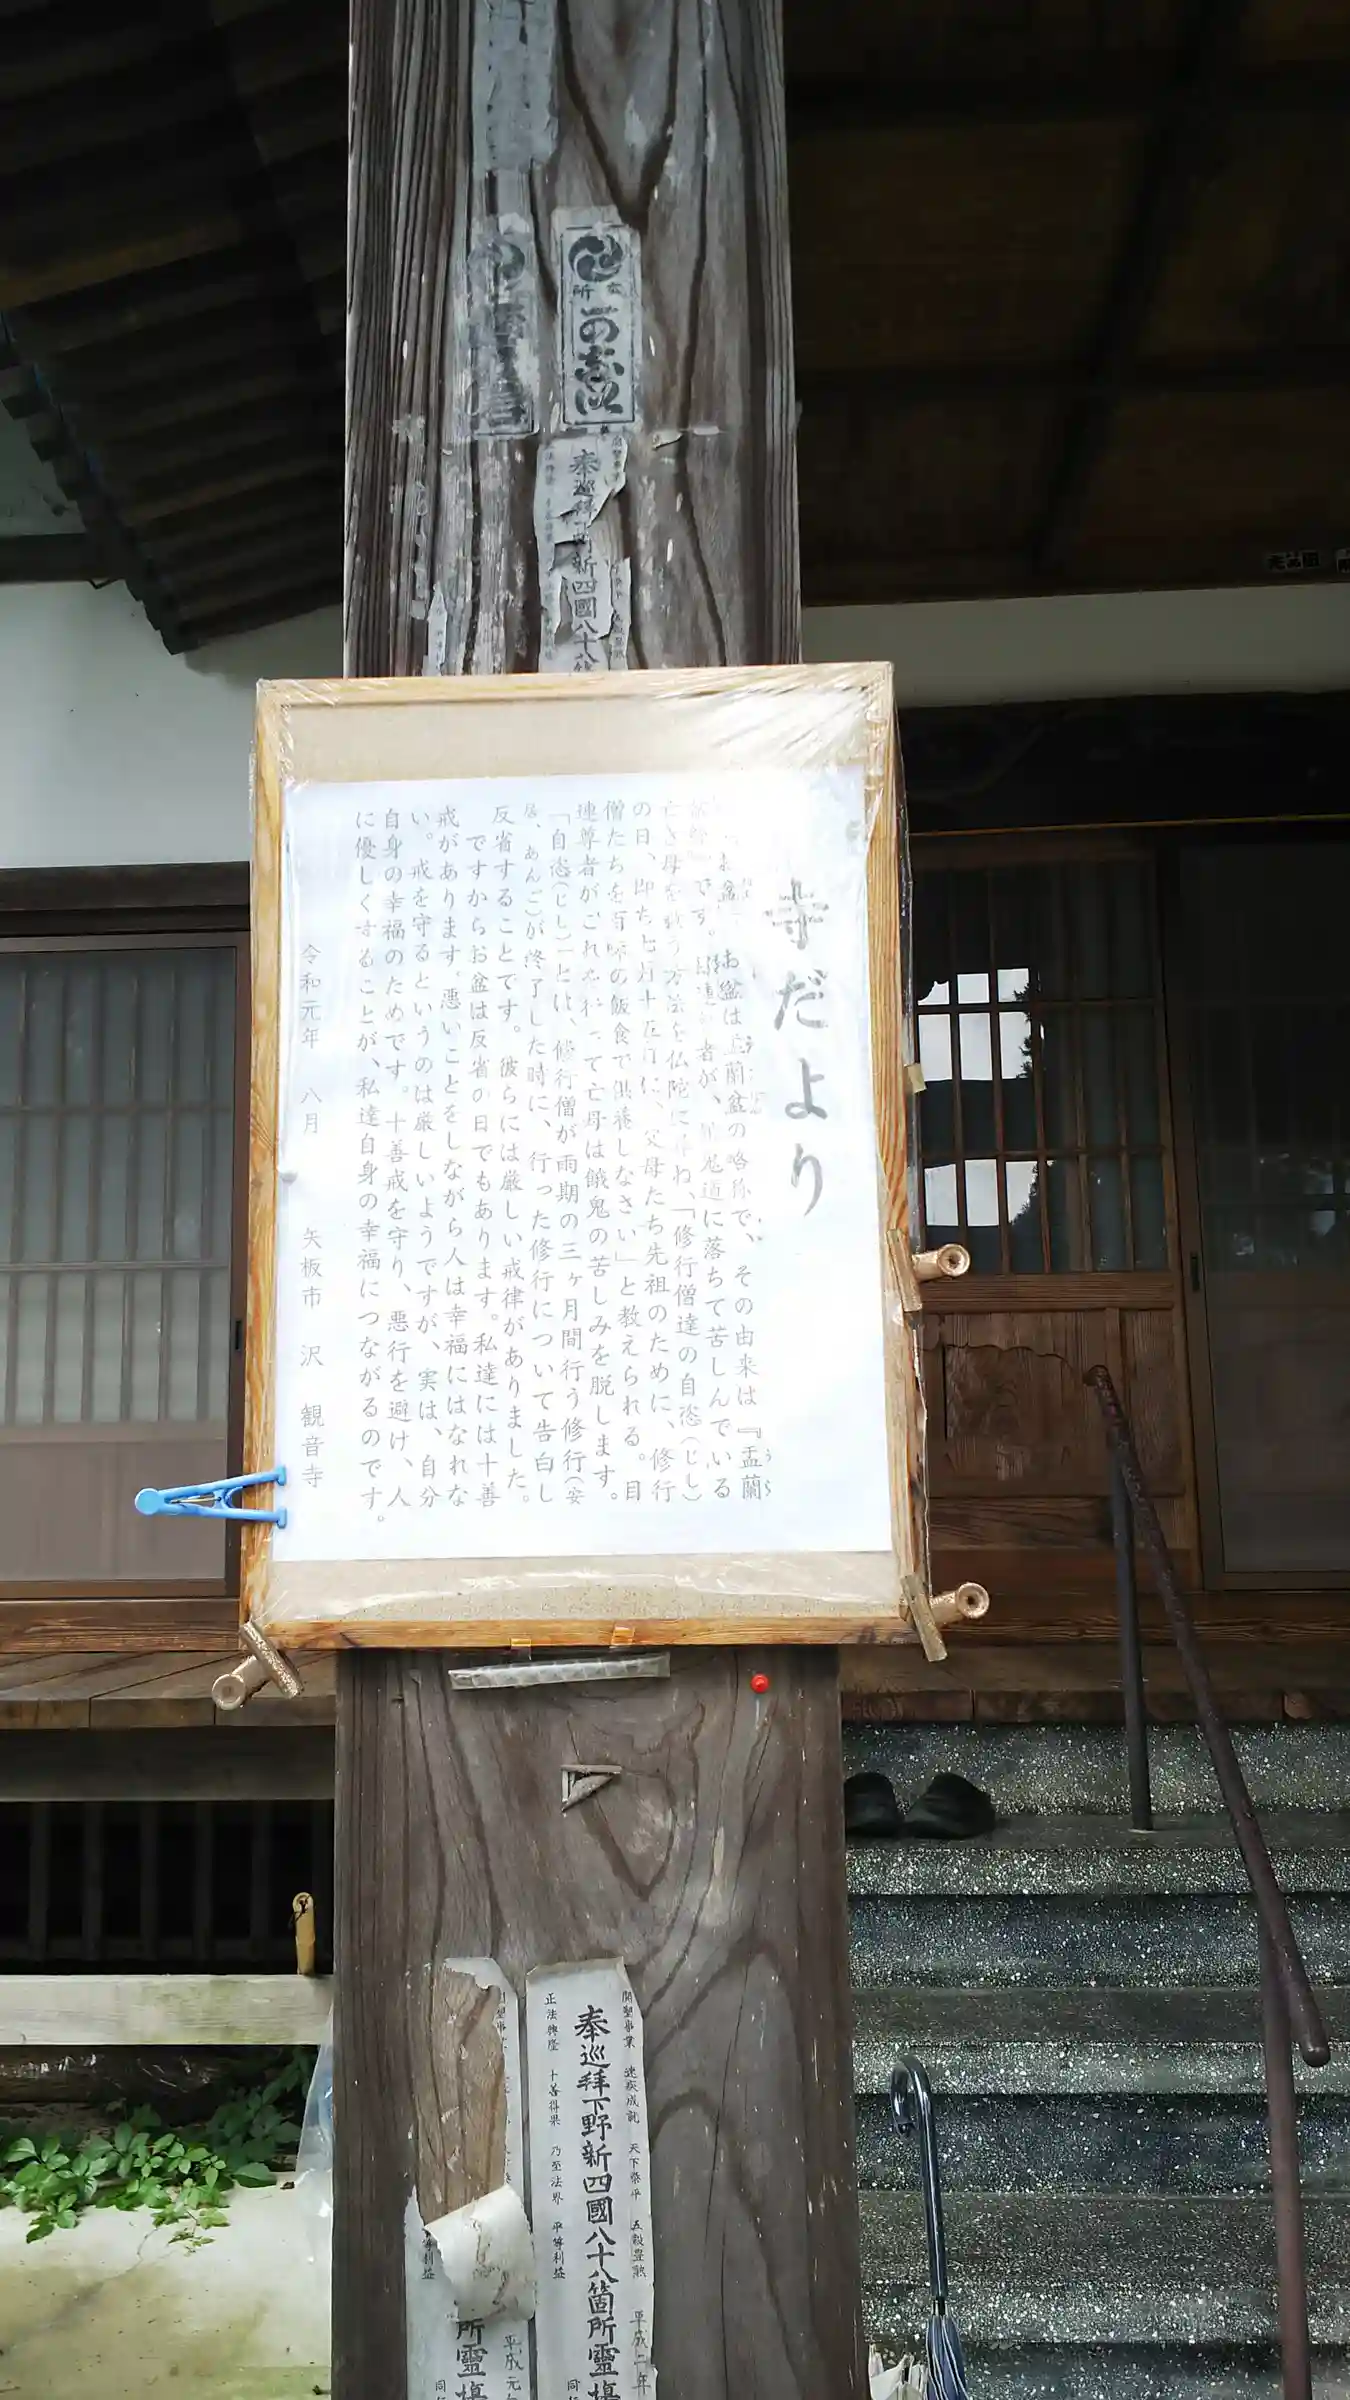 本所
一の宮以
奉巡拝下野新四國八十八箇
寺だより
お盆は盂蘭盆の略称で、その由来は『盂蘭
うら
盆経』です。目連尊者が、餓鬼道に落ちて苦しんでいる
亡き母を救う方法を仏陀に尋ね、「修行僧達の自恣(じし)
の日、即ち七月十五日に、父母たち先祖のために、修行
僧たちを百味の飯食で供養しなさい」と教えられる。目
連尊者がこれを行って亡母は餓鬼の苦しみを脱します。
「自恣(じし)」とは、修行僧が雨期の三ヶ月間行う修行(安
居、あんご)が終了した時に、行った修行について告白し
反省することです。彼らには厳しい戒律がありました。
ですからお盆は反省の日でもあります。私達には十善
戒があります。悪いことをしながら人は幸福にはなれな
い。戒を守るというのは厳しいようですが、実は、自分
自身の幸福のためです。十善戒を守り、悪行を避け、人
に優しくすることが、私達自身の幸福につながるのです。
令和元年 八月 矢板市 沢 観音寺
開塑事業 速疾成就 天下泰平 五穀豊熟 平成二年
奉巡拝下野新四國八十八箇所霊場
正法興隆 十善得果 乃至法界 平等利益 同
平成元
所霊場
等利益